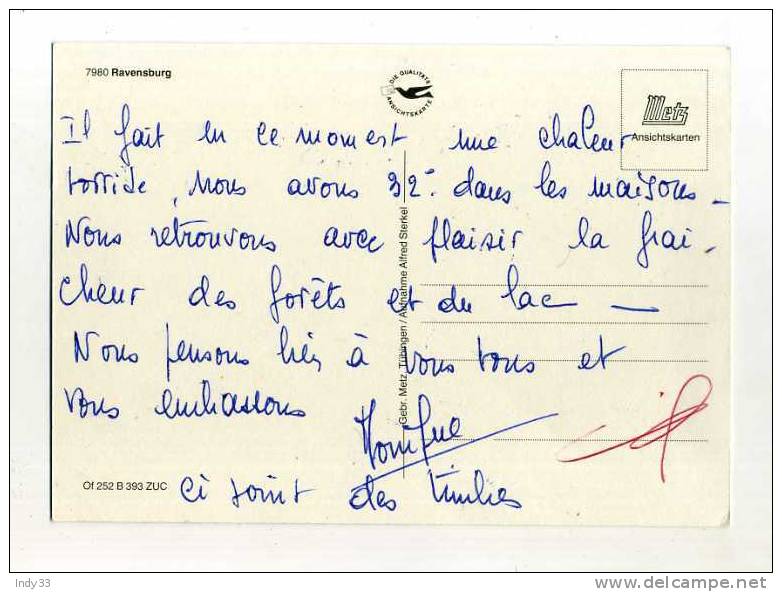 7980 Ravensburg
DIE QUALITÄTS ANSICHTSKARTE
Metz
Ansichtskarten
Il fait en ce moment une chaleur
torride, nous avons 32° dans les maisons _
Nous retrouvons avec plaisir la frai -
cheur des forêts et du lac —
Nous pensons bien à vous tous et
vous embrassons
ci joint des timbres
Gebr. Metz, Tübingen / Aufnahme Alfred Sterkel
Of 252 B 393 ZUC
Indy33
delcampe.net